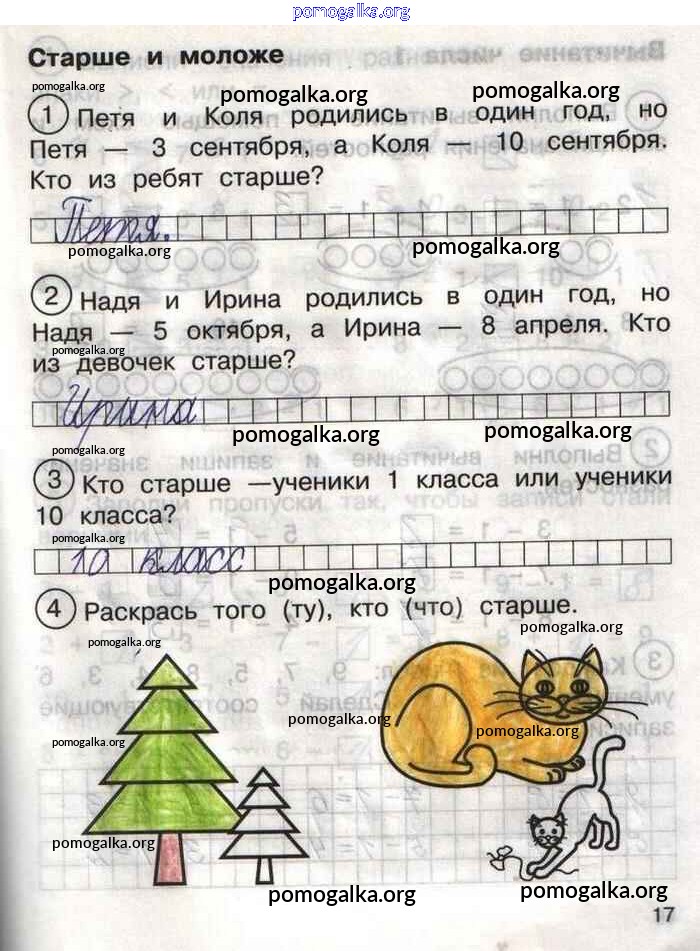 pomogalka.org
Старше и моложе
pomogalka.org
pomogalka.org
pomogalka.org
1 Петя и Коля родились в один год, но
Петя — 3 сентября, а Коля — 10 сентября.
Кто из ребят старше?
Петя.
pomogalka.org
pomogalka.org
2 Надя и Ирина родились в один год, но
Надя — 5 октября, а Ирина — 8 апреля. Кто
pomogalka.org
из девочек старше?
Ирина
pomogalka.org
pomogalka.org
pomogalka.org
3 Кто старше —ученики 1 класса или ученики
10 класса?
pomogalka.org
10 класс
pomogalka.org
4 Раскрась того (ту), кто (что) старше.
pomogalka.org
pomogalka.org
pomogalka.org
pomogalka.org
pomogalka.org
pomogalka.org
pomogalka.org
pomogalka.org
17